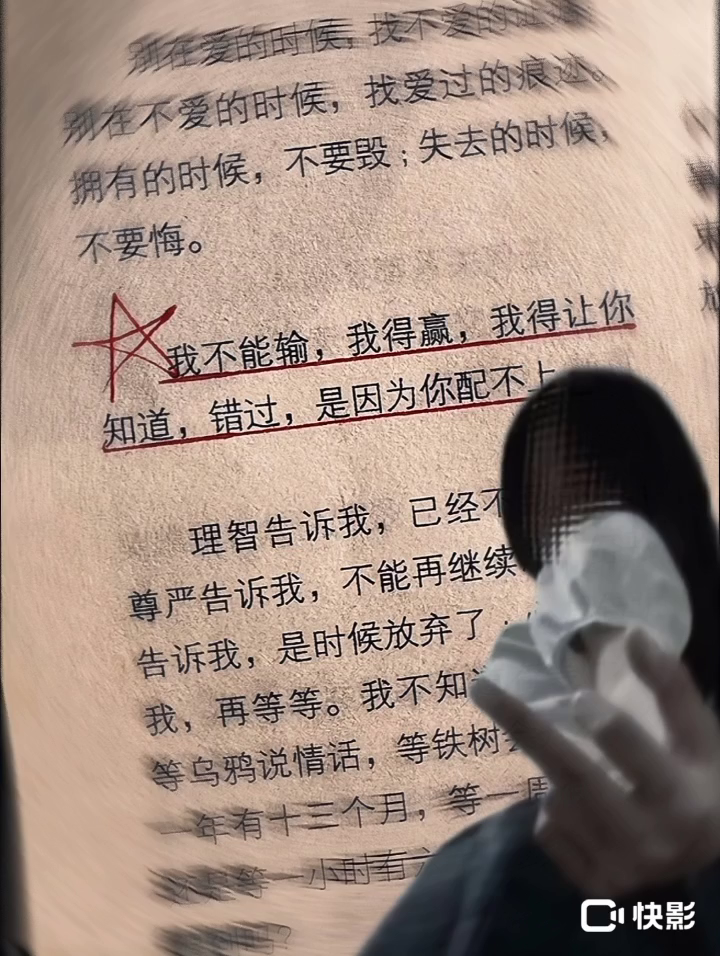 别在爱的时候，找不爱的证据
别在不爱的时候，找爱过的痕迹。
拥有的时候，不要毁；失去的时候，
不要悔。
我不能输，我得赢，我得让你
知道，错过，是因为你配不上
理智告诉我，已经不
尊严告诉我，不能再继续
告诉我，是时候放弃了
我，再等等。我不知道
等乌鸦说情话，等铁树
一年有十三个月，等一周
等一小时有六
快影